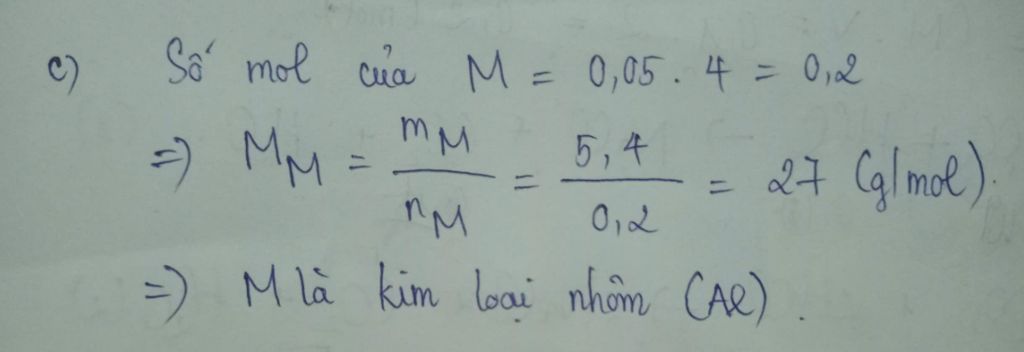 c) Số mol của M = 0,05 . 4 = 0,2
=> M_M = m_M / n_M = 5,4 / 0,2 = 27 (g/mol).
=> M là kim loại nhôm (Al).